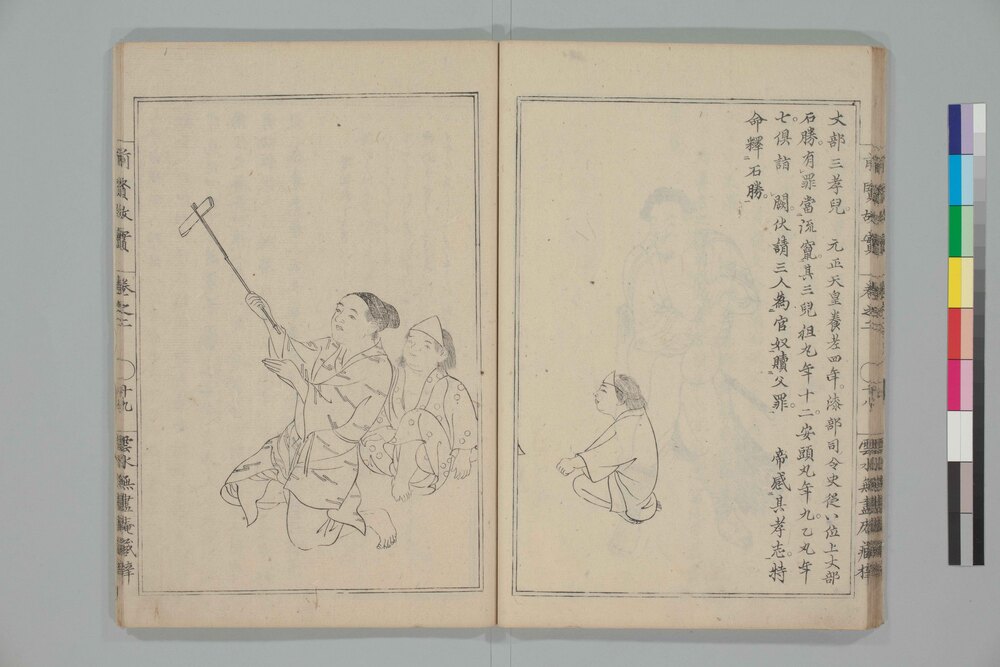 丈部三孝兒。 元正天皇養老四年。漆部司令史從八位上丈部
石勝。有罪當流竄。其三兒祖丸年十二安頭丸年九。乙丸年
七。俱詣 闕伏請三人為官奴贖父罪。 帝感其孝志。特
命釋石勝。
前賢故實
卷之二
前賢故實
卷之二
十九